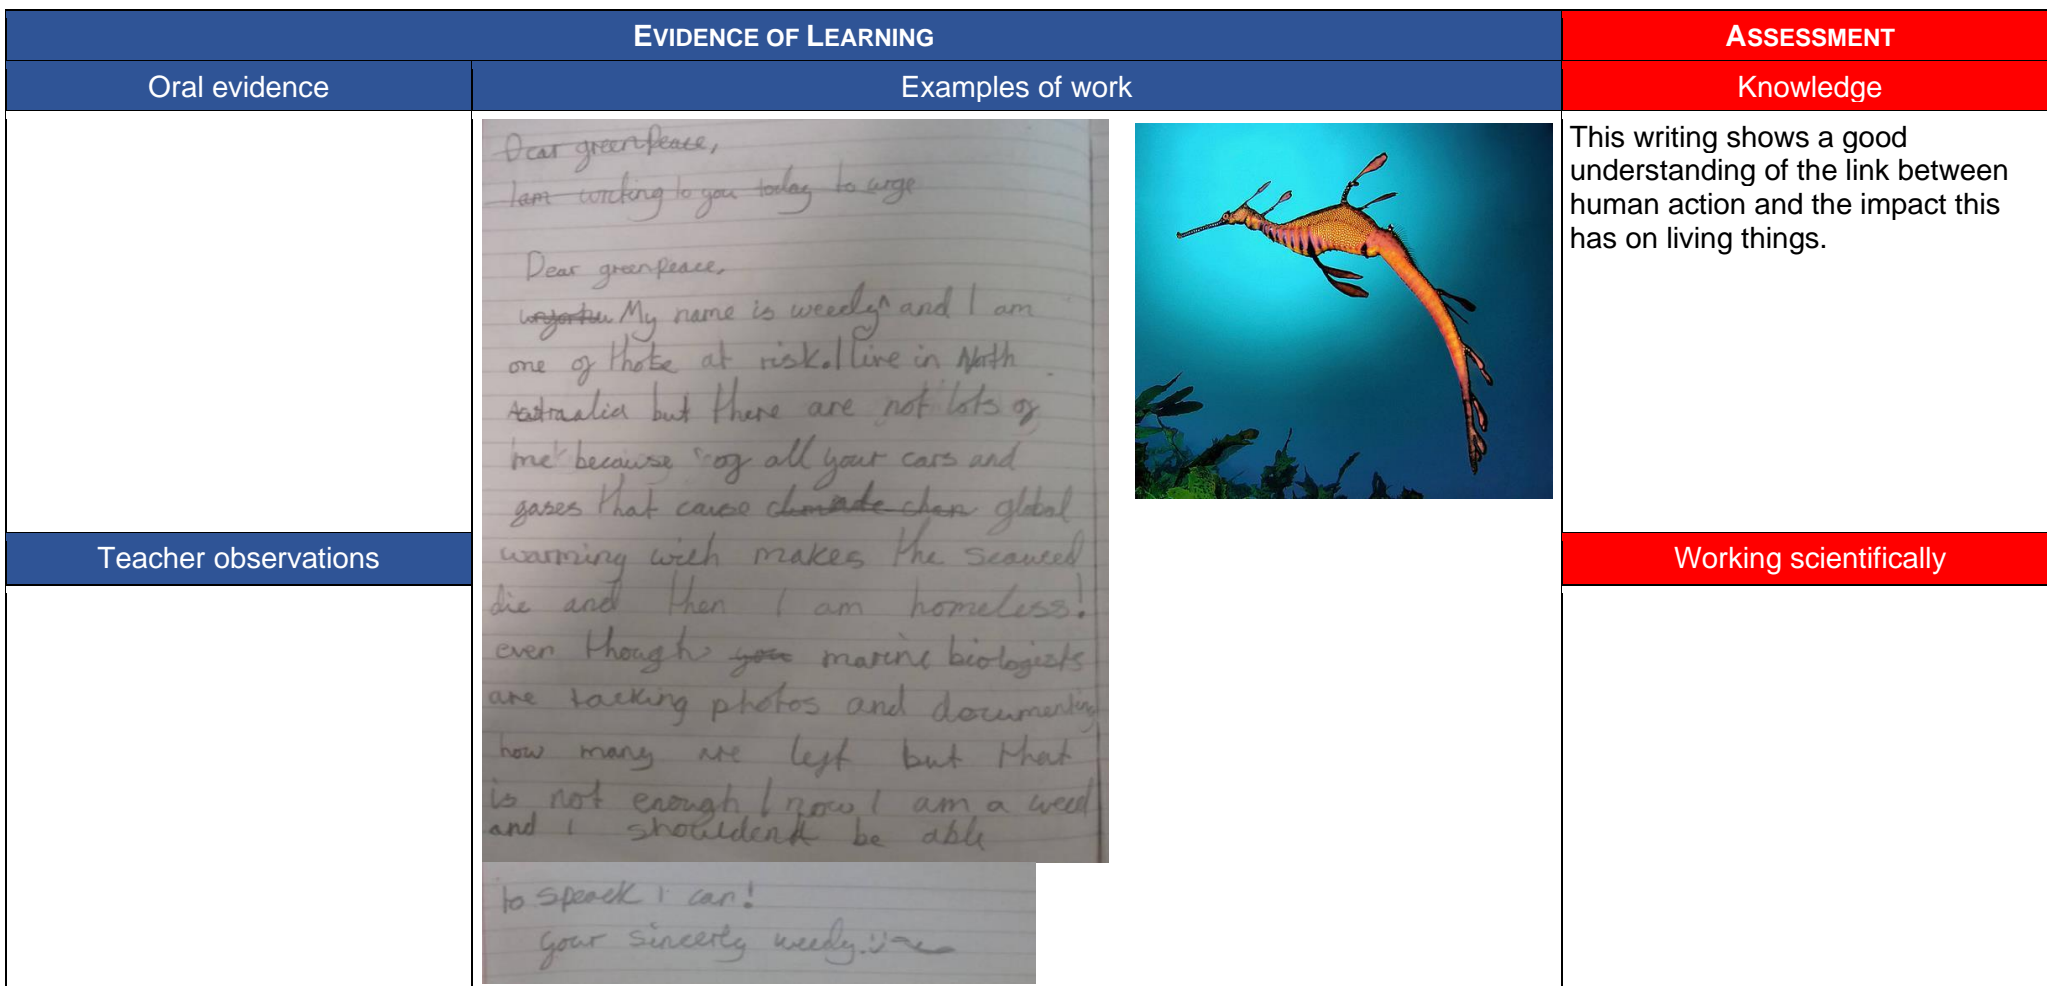 EVIDENCE OF LEARNING
ASSESSMENT
Oral evidence
Examples of work
Knowledge
Dear greenpeace,
I am writing to you today to urge
Dear greenpeace,
My name is weedy^ and I am
one of those at risk. I live in North
Astraalia but there are not lots of
me because of all your cars and
gases that cause climate chan global
warming wich makes the seaweed
die and then I am homeless!
even though you marine biologists
are tacking photos and documenting
how many are left but that
is not enough I now I am a weed
and i shouldent be able
to speack i can!
your sincerly weedy. :)
This writing shows a good
understanding of the link between
human action and the impact this
has on living things.
Teacher observations
Working scientifically